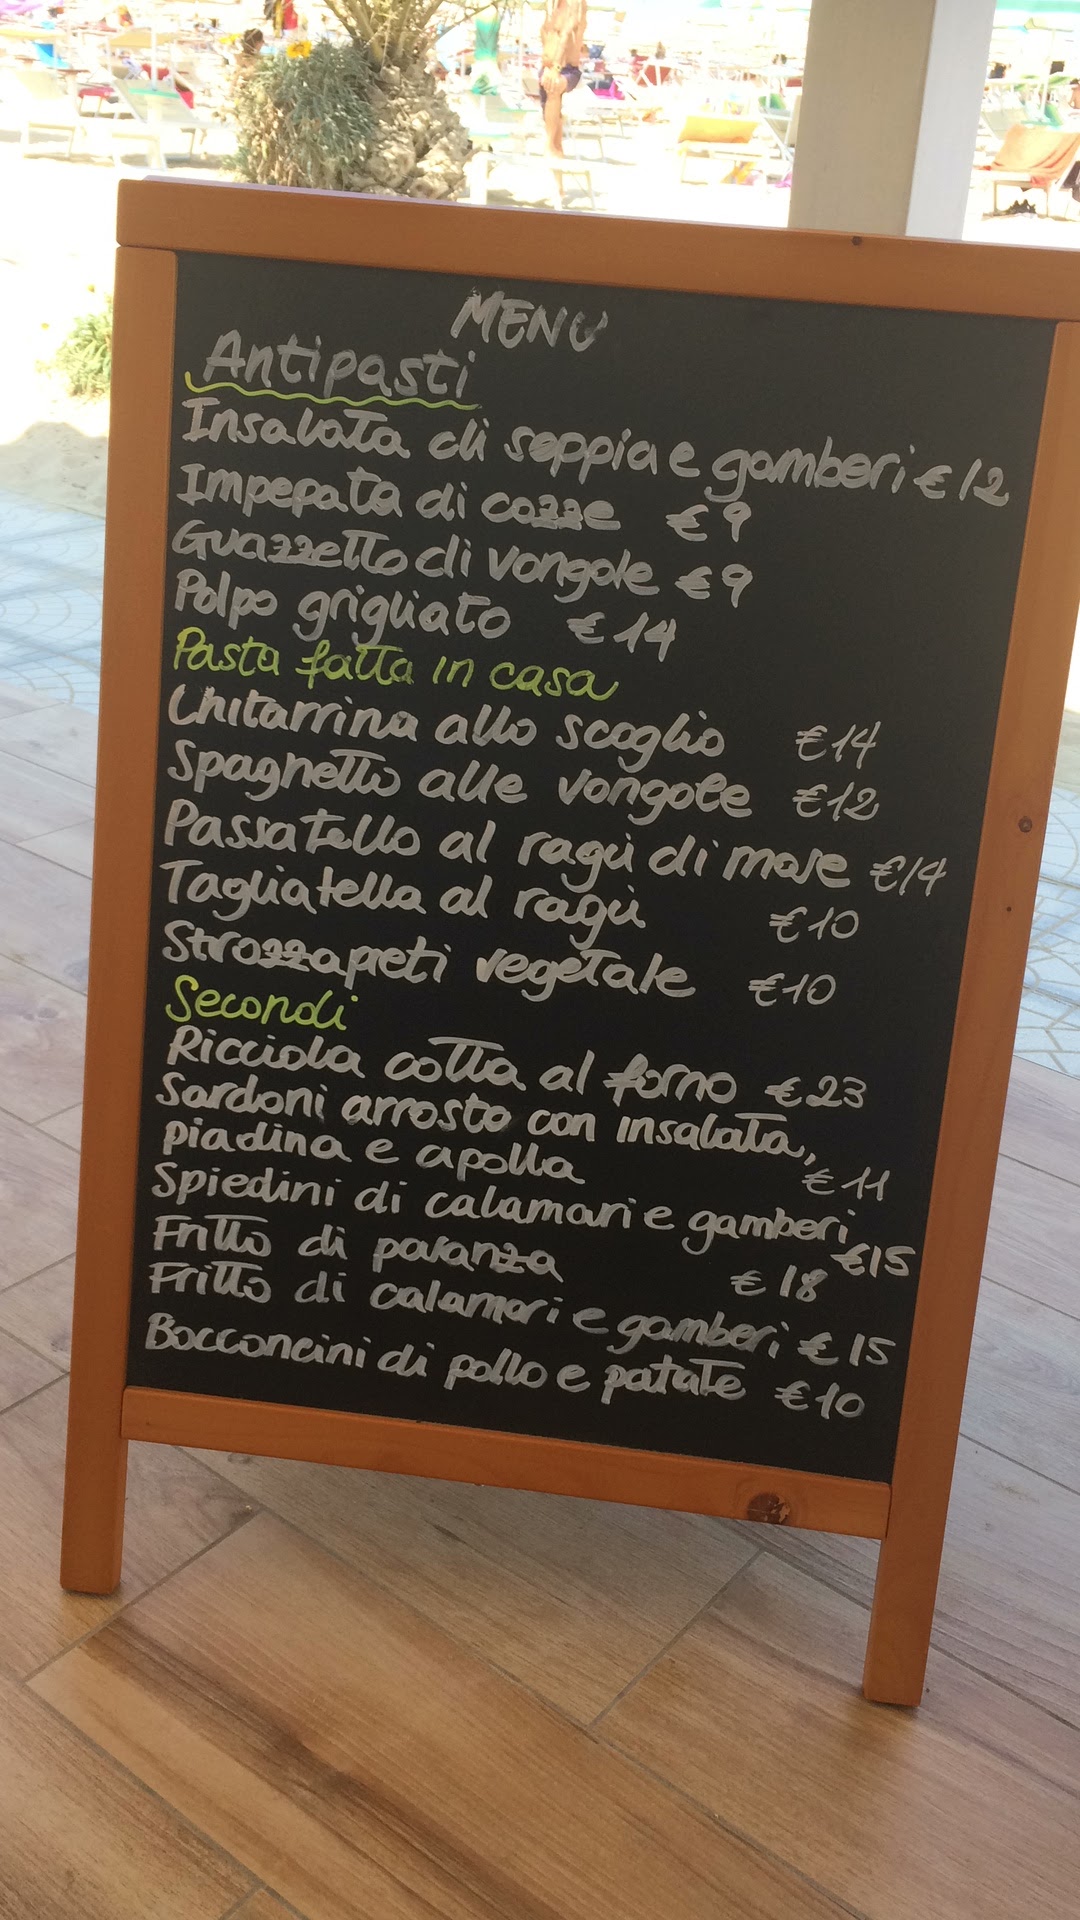 MENU
Antipasti
Insalata di seppia e gamberi € 12
Impepata di cozze € 9
Guazzetto di vongole € 9
Polpo grigliato € 14
Pasta fatta in casa
Chitarrina allo scoglio €14
Spaghetto alle vongole €12
Passatello al ragù di mare €14
Tagliatella al ragù €10
Strozzapreti vegetale €10
Secondi
Ricciola cotta al forno €23
Sardoni arrosto con insalata,
piadina e cipolla €11
Spiedini di calamari e gamberi €15
Fritto di paranza €18
Fritto di calamari e gamberi €15
Bocconcini di pollo e patate €10